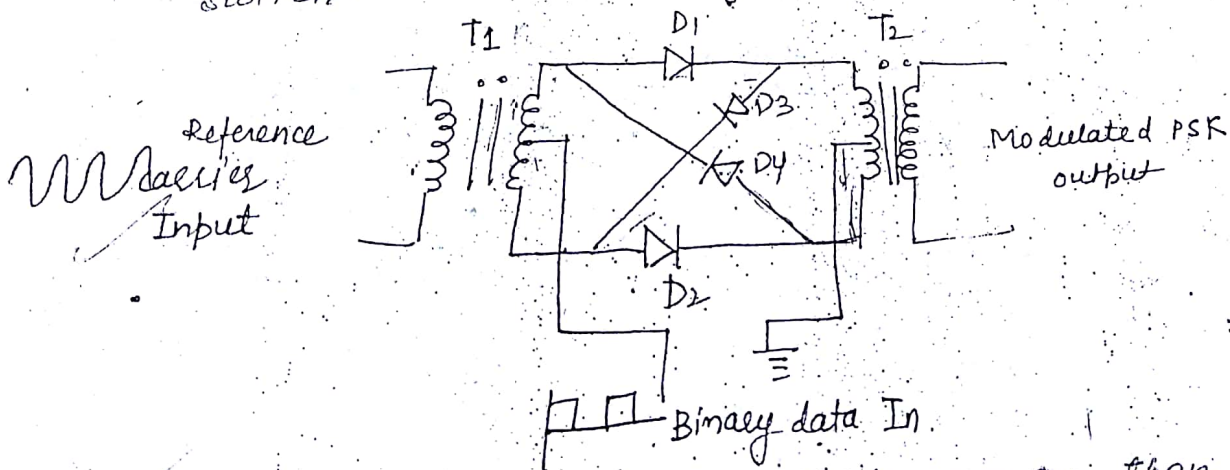 T1
D1
T2
D3
D4
D2
Reference
carrier
Input
Modulated PSK
output
Binary data In.
than